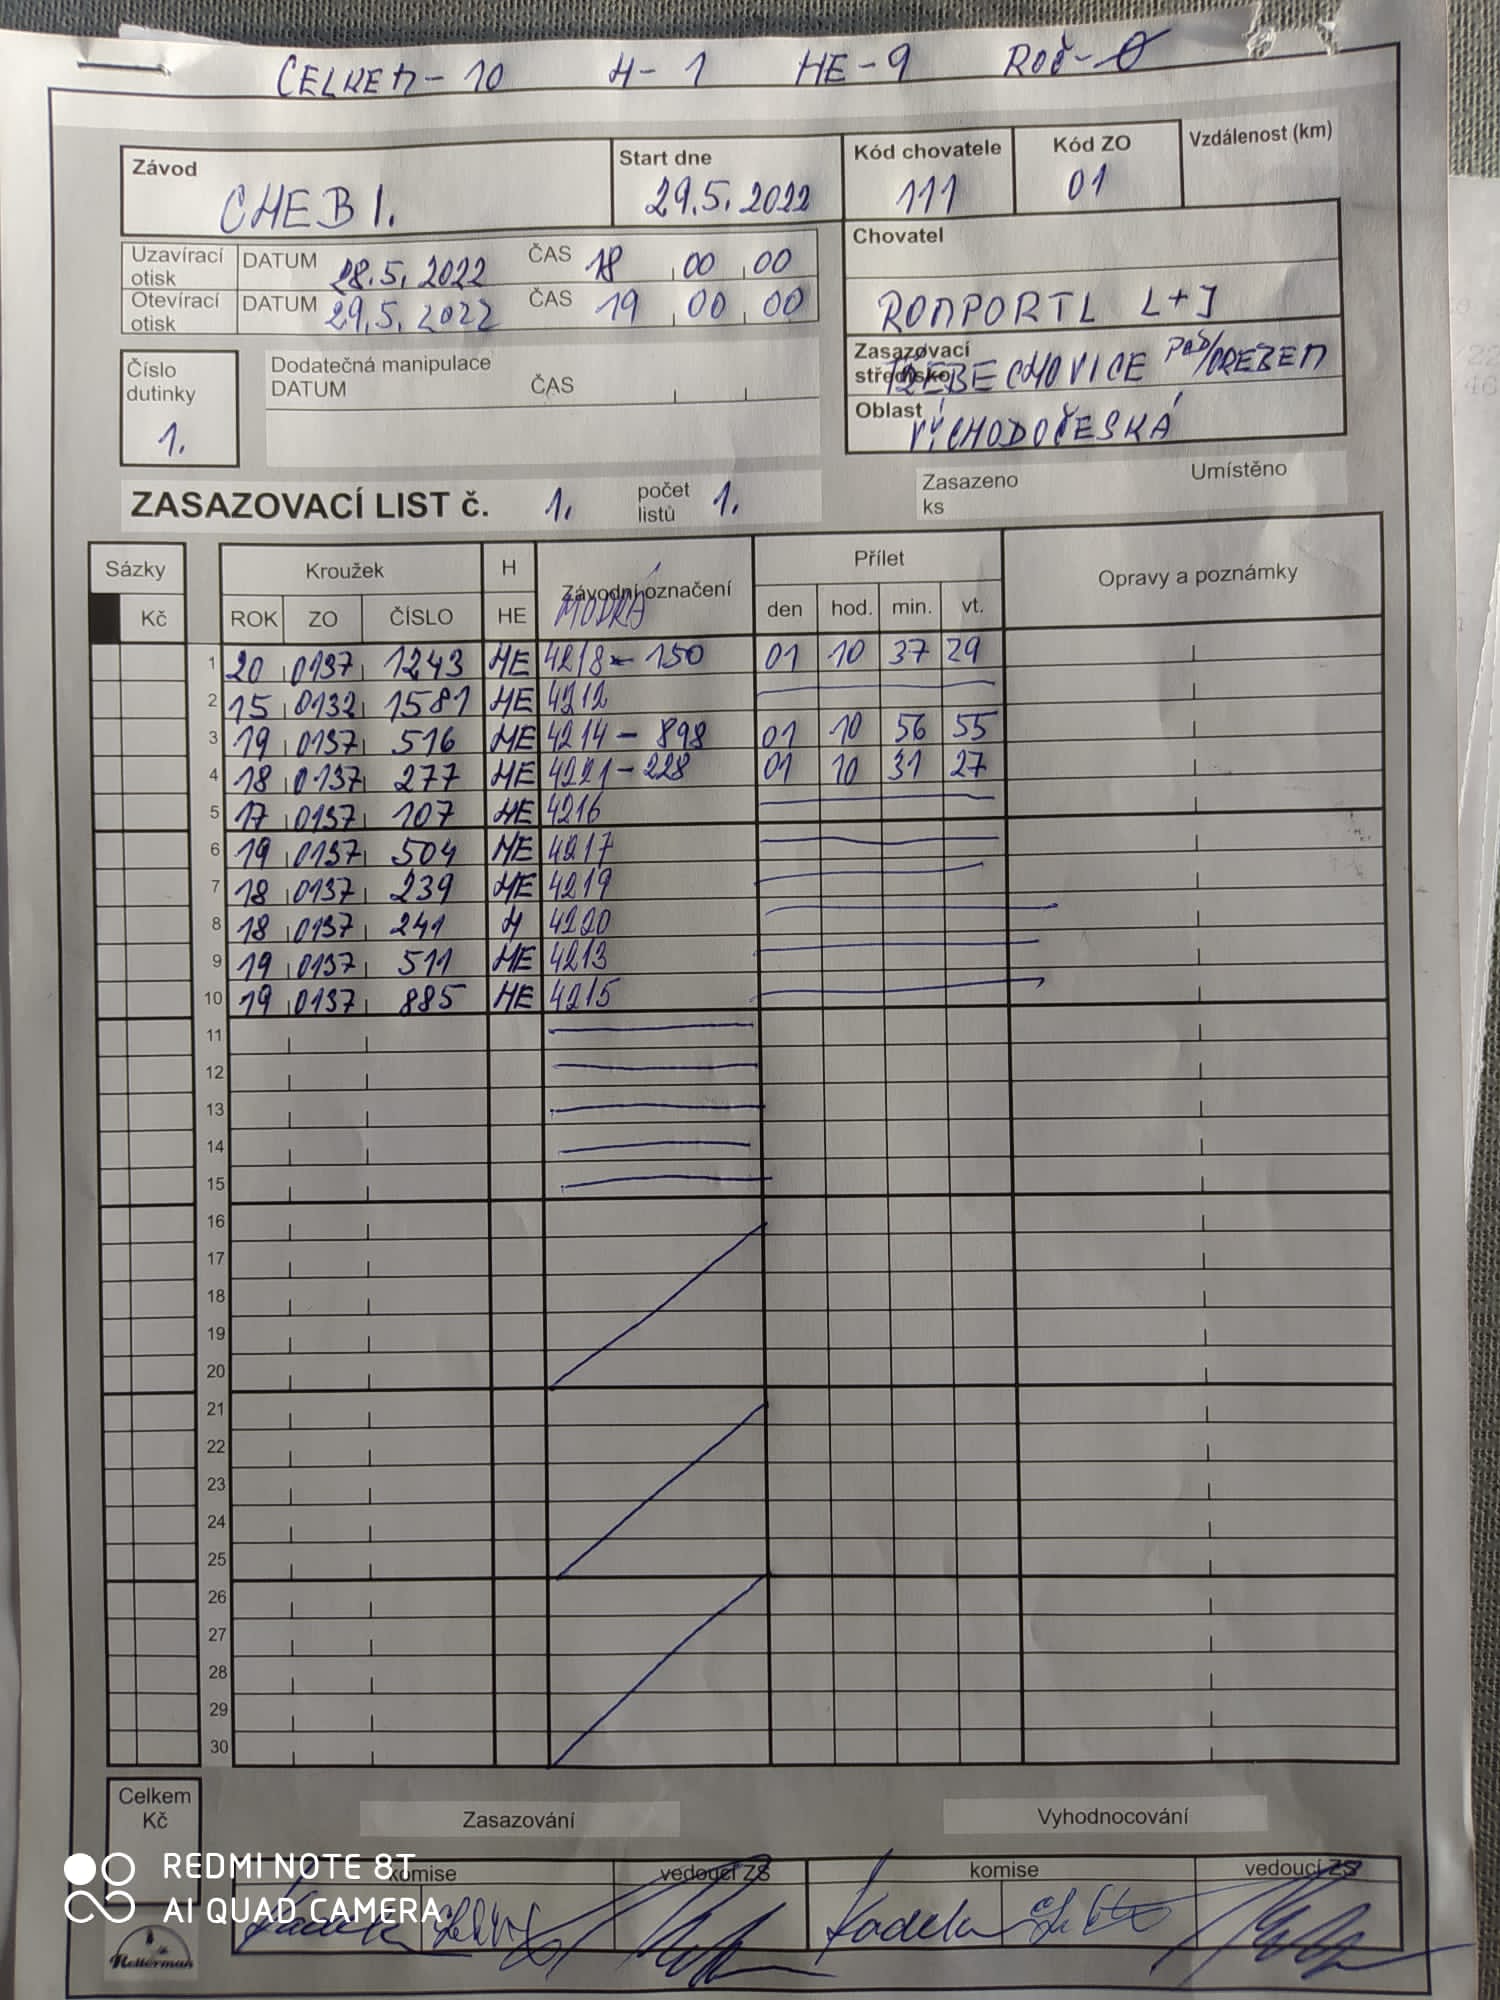 CELKEM - 10 H - 1 HE - 9 Roč - 0
Závod
CHEB I.
Start dne
29.5.2022
Kód chovatele
111
Kód ZO
01
Vzdálenost (km)
Uzavírací otisk DATUM 28.5.2022 ČAS 18 00 00
Otevírací otisk DATUM 29.5.2022 ČAS 19 00 00
Chovatel
ROMPORTL L+J
Zasazovací středisko TŘEBECHOVICE POD/OREBEM
Oblast VÝCHODOČESKÁ
Číslo dutinky
1.
Dodatečná manipulace
DATUM ČAS
ZASAZOVACÍ LIST č. 1. počet listů 1.
Zasazeno ks
Umístěno
Sázky Kroužek H Závodní označení Přílet Opravy a poznámky
Kč ROK ZO ČÍSLO HE MODRÁ den hod. min. vt.
1 20 0137 1243 HE 4218 - 150 01 10 37 29
2 15 0132 1581 HE 4212
3 19 0137 516 HE 4214 - 898 01 10 56 55
4 18 0137 277 HE 4221 - 228 01 10 31 27
5 17 0137 107 HE 4216
6 19 0137 504 HE 4217
7 18 0137 239 HE 4219
8 18 0137 241 H 4220
9 19 0137 511 HE 4213
10 19 0137 885 HE 4215
11
12
13
14
15
16
17
18
19
20
21
22
23
24
25
26
27
28
29
30
Celkem Kč
Zasazování
Vyhodnocování
komise vedoucí ZS komise vedoucí ZS
REDMI NOTE 8T
AI QUAD CAMERA